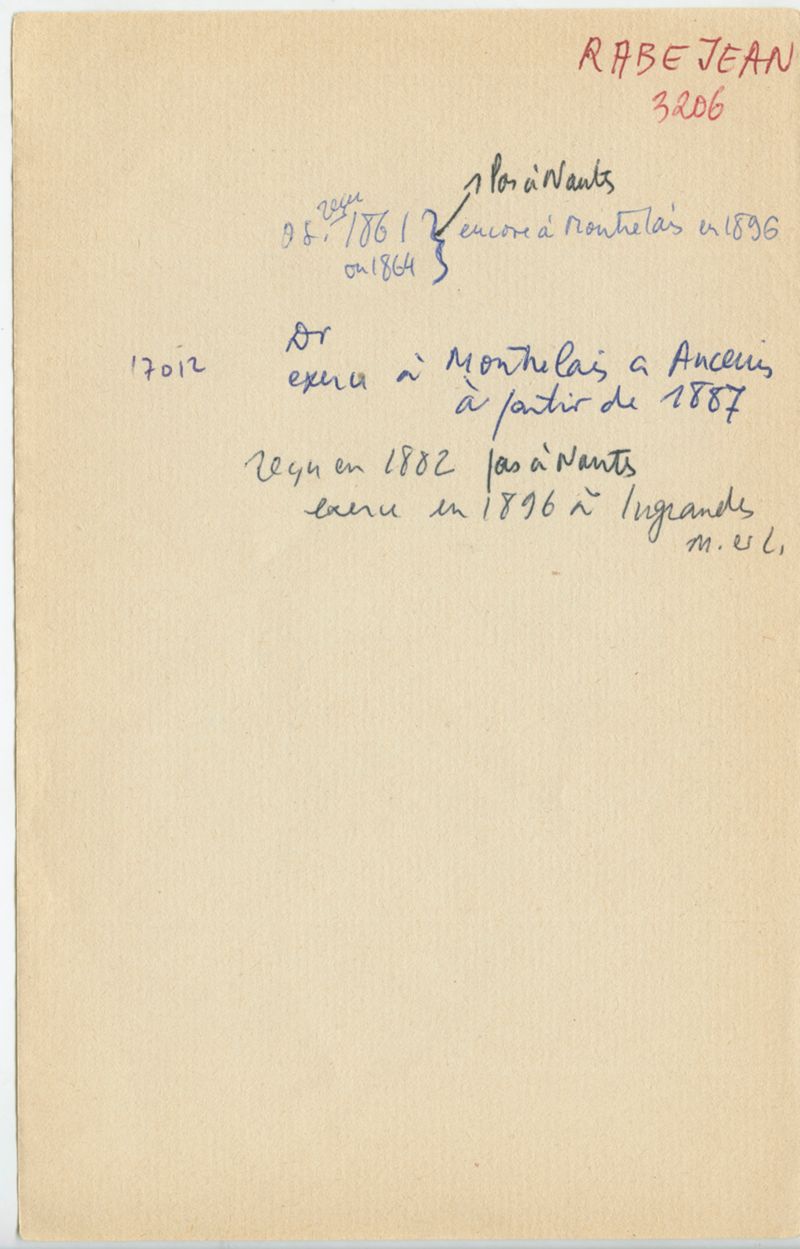 RABEJEAN
3206
Pas à Nantes
reçu
O.S. 1861 } encore à Montrelais en 1896
ou 1864
Dr
17012 exerce à Montrelais a Ancenis
à partir de 1887
reçu en 1882 pas à Nantes
exerce en 1896 à Ingrandes
M. et L.